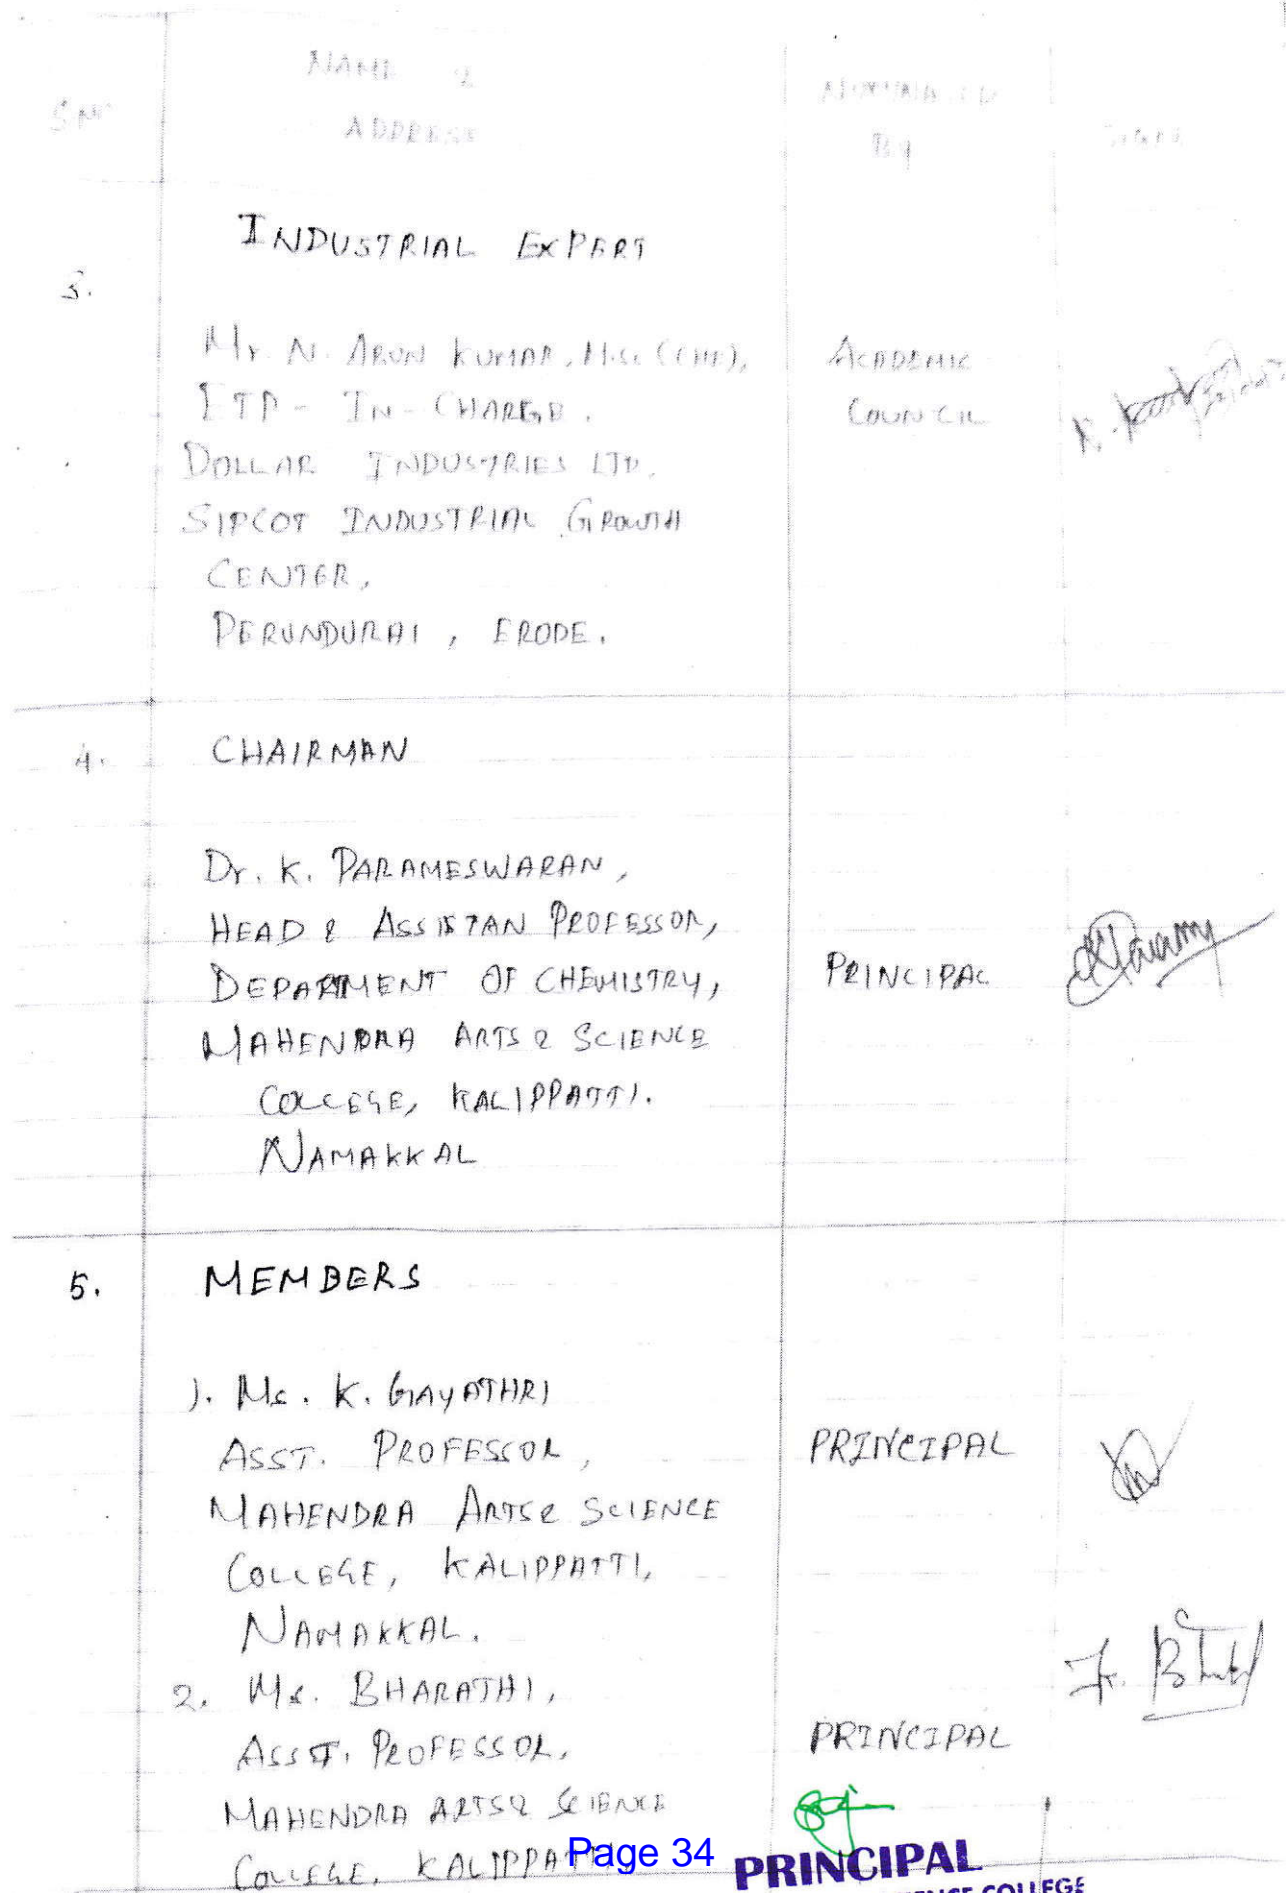 S.NO
NAME &
ADDRESS
NOMINATED
BY
SIGN
INDUSTRIAL EXPERT
3.
Mr. N. ARUN KUMAR, M.Sc (CHE),
ETP - IN - CHARGE.
DOLLAR INDUSTRIES LTD.
SIPCOT INDUSTRIAL GROWTH
CENTER,
PERUNDURAI, ERODE.
ACADEMIC
COUNCIL
4. CHAIRMAN
Dr. K. PARAMESWARAN,
HEAD & ASSISTAN PROFESSOR,
DEPARTMENT OF CHEMISTRY,
MAHENDRA ARTS & SCIENCE
COLLEGE, KALIPPATTI.
NAMAKKAL
PRINCIPAL
5. MEMBERS
1. Ms. K. GAYATHRI
ASST. PROFESSOR,
MAHENDRA ARTS & SCIENCE
COLLEGE, KALIPPATTI,
NAMAKKAL.
PRINCIPAL
2. Ms. BHARATHI,
ASST. PROFESSOR,
MAHENDRA ARTS & SCIENCE
COLLEGE, KALIPPATTI
PRINCIPAL
Page 34
PRINCIPAL
COLLEGE